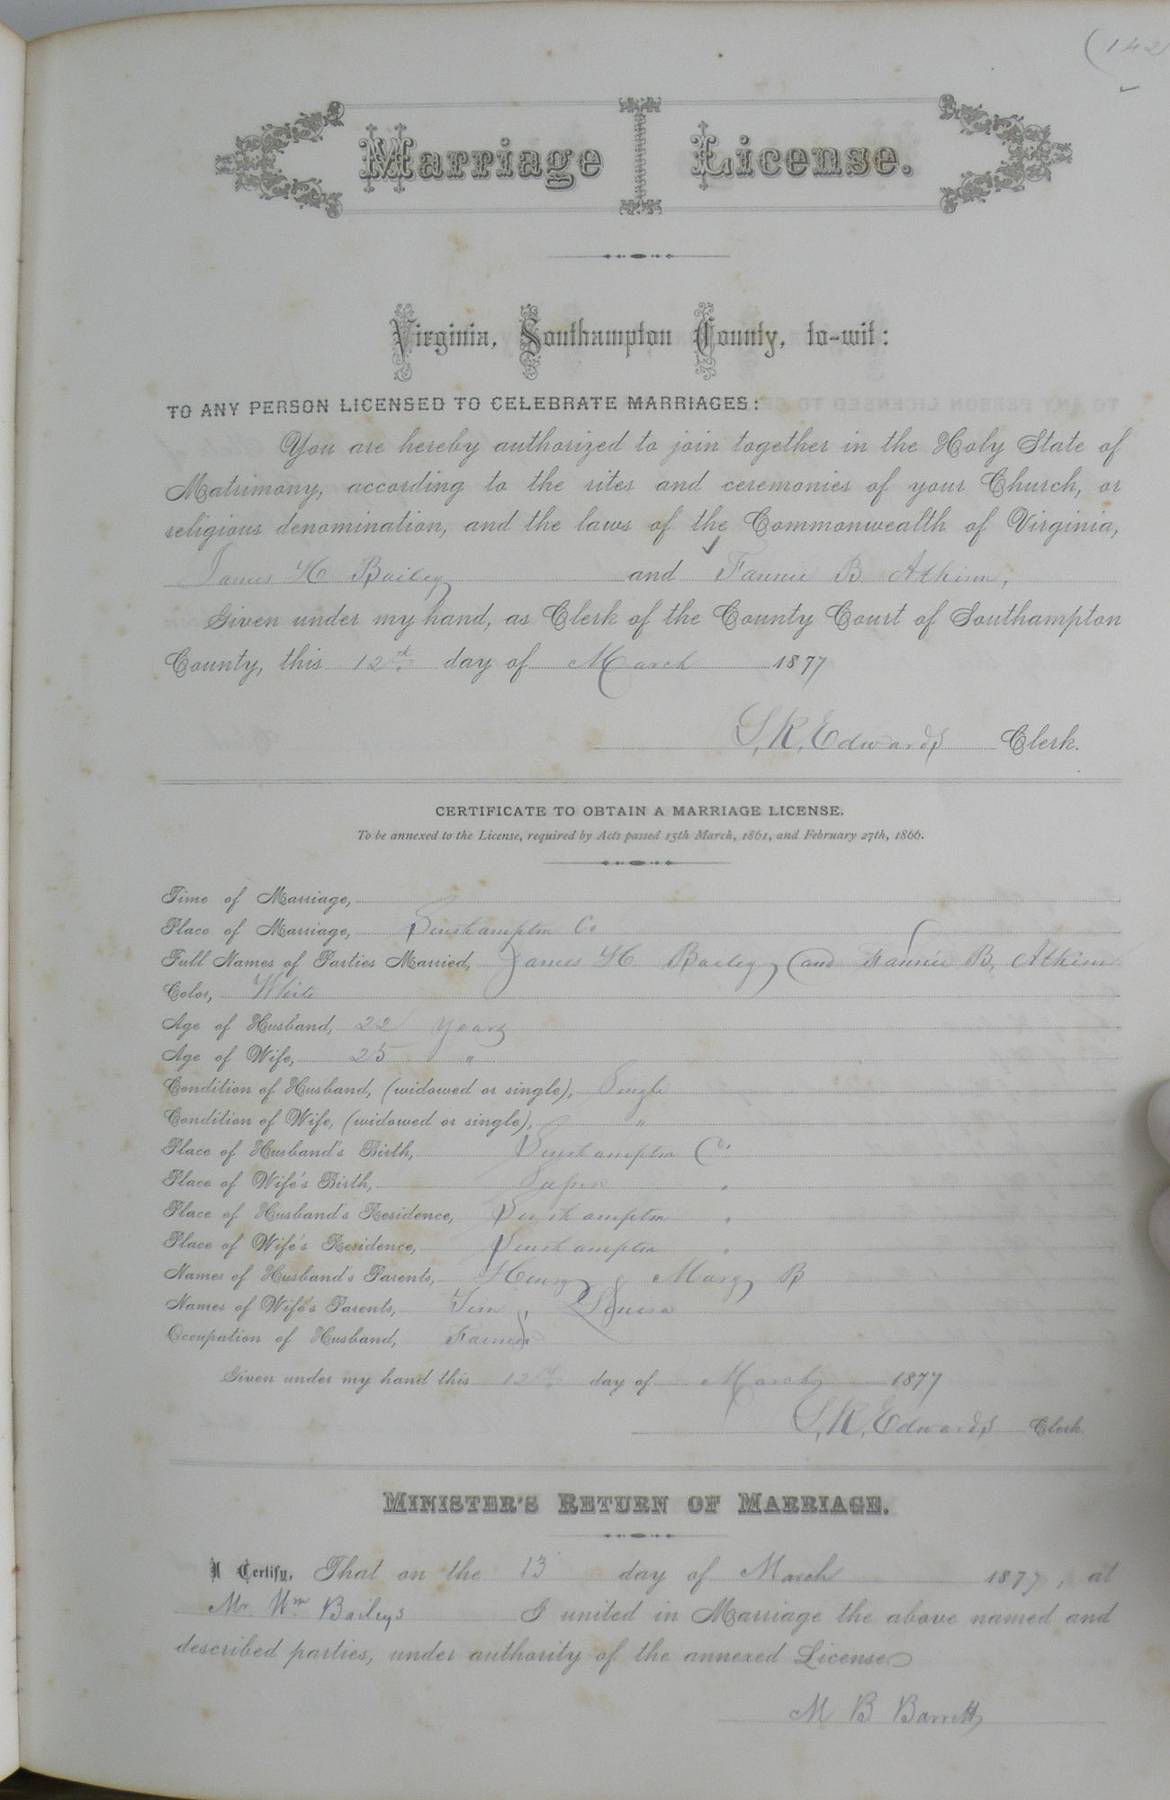 (142)
Marriage License.
Virginia, Southampton County, to-wit:
TO ANY PERSON LICENSED TO CELEBRATE MARRIAGES:
You are hereby authorized to join together in the Holy State of
Matrimony, according to the rites and ceremonies of your Church, or
religious denomination, and the laws of the Commonwealth of Virginia,
James H Bailey and Fannie B Atkins,
Given under my hand, as Clerk of the County Court of Southampton
County, this 12th day of March 1877
L. R. Edwards Clerk.
CERTIFICATE TO OBTAIN A MARRIAGE LICENSE.
To be annexed to the License, required by Acts passed 15th March, 1861, and February 27th, 1866.
Time of Marriage,
Place of Marriage, Southampton Co
Full Names of Parties Married, James H Bailey and Fannie B. Atkins
Color, White
Age of Husband, 22 years
Age of Wife, 25 "
Condition of Husband, (widowed or single), Single
Condition of Wife, (widowed or single), "
Place of Husband's Birth, Southampton Co
Place of Wife's Birth,
Place of Husband's Residence, Southampton "
Place of Wife's Residence, Southampton "
Names of Husband's Parents, Henry & Mary B
Names of Wife's Parents, Louisa
Occupation of Husband, Farmer
Given under my hand this 12th day of March 1877
L. R. Edwards Clerk.
MINISTER'S RETURN OF MARRIAGE.
I Certify, That on the 13 day of March 1877, at
Mr. Wm Baileys I united in Marriage the above named and
described parties, under authority of the annexed License
M B Barrett